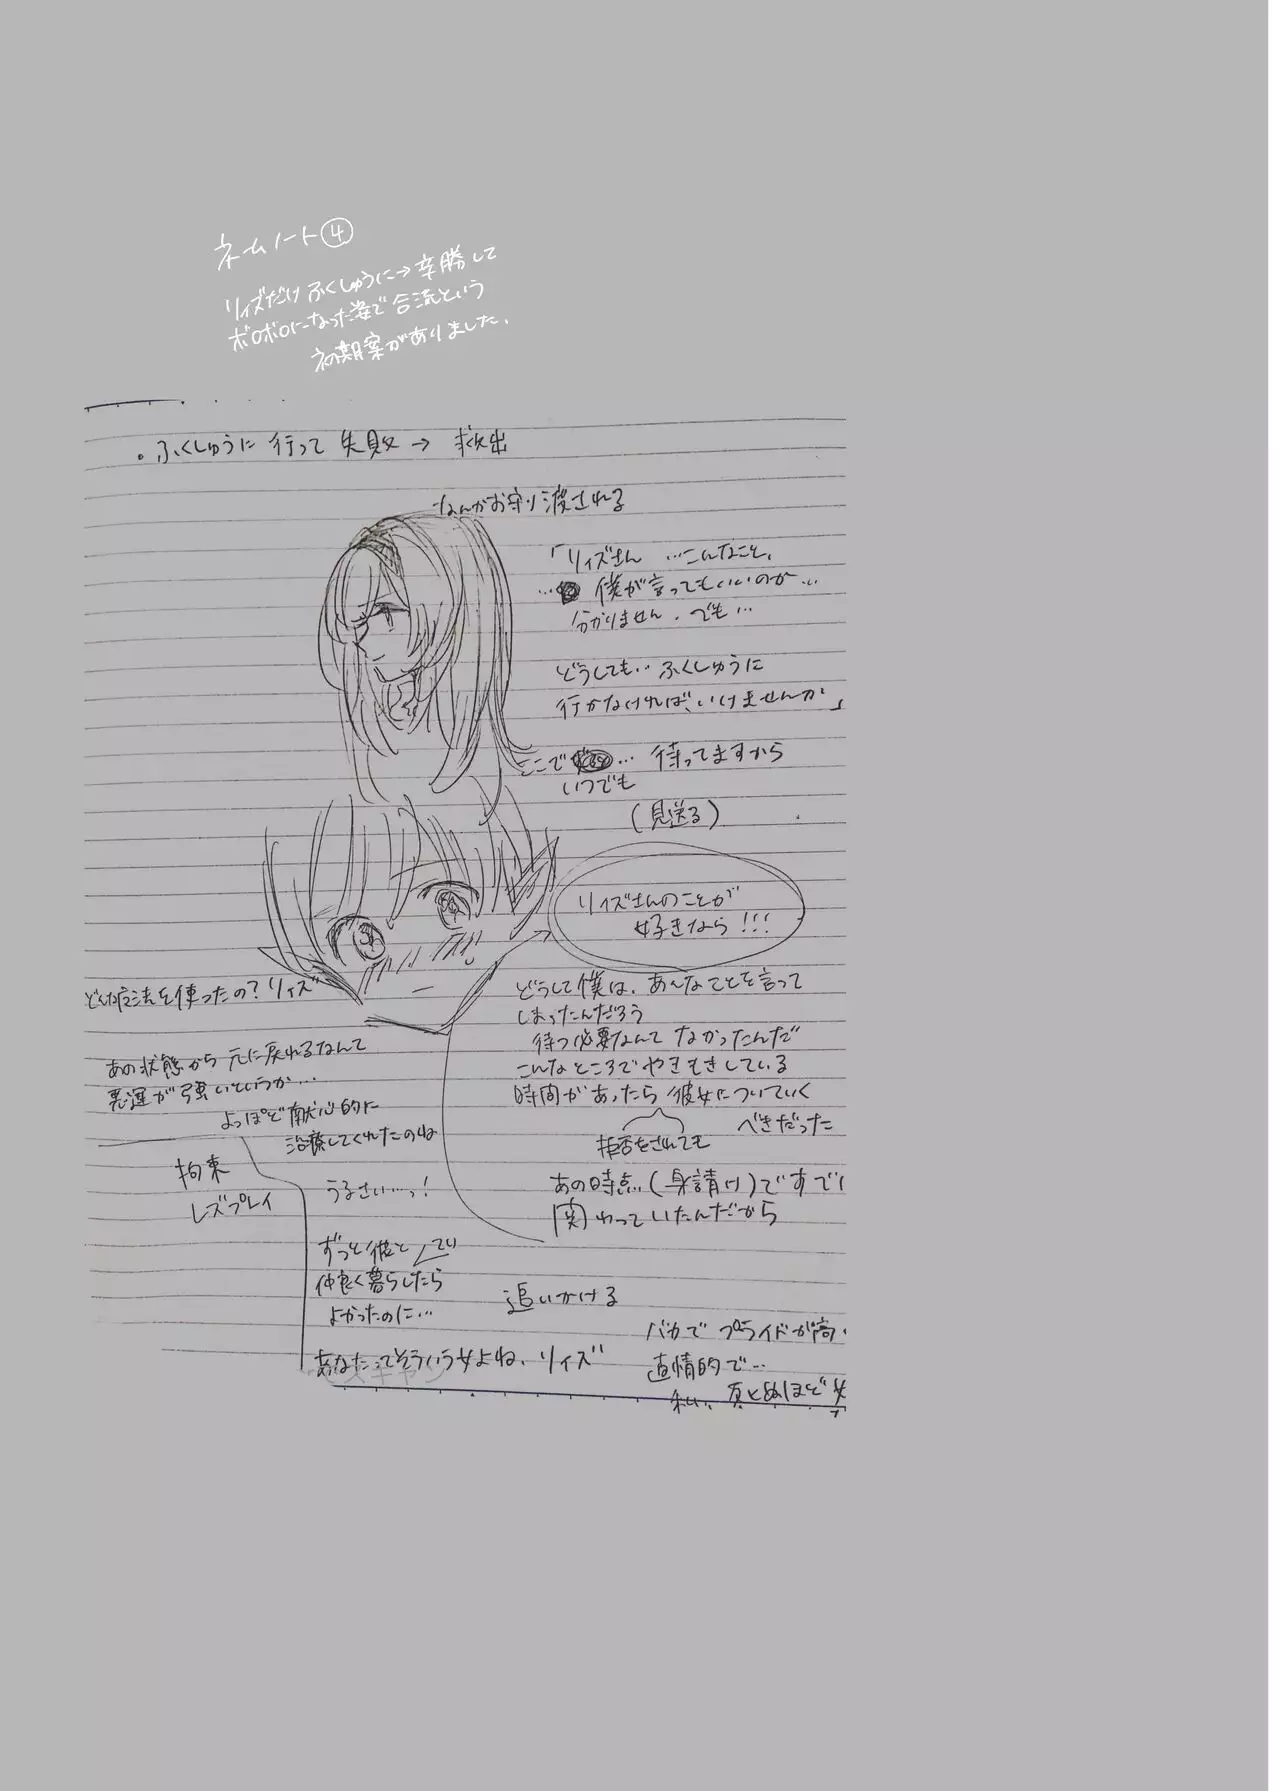 ネームノート④
リィズだけふくしゅうに→辛勝して
ボロボロになった姿で合流という
初期案がありました.
・ふくしゅうに 行って 失敗 → 救出
なんかお守り渡される
「リィズさん …こんなこと、
… 僕が言ってもいいのか…
分かりません. でも…
どうしても… ふくしゅうに
行かなければ、いけませんか」
ここで … 待ってますから
いつでも
(見送る)
リィズさんのことが
好きなら!!!
どうして僕は、あんなことを言って
しまったんだろう
待つ必要なんて なかったんだ
こんなところでやきもきしている
時間があったら 彼女についていく
べきだった
拒否をされても
あの時点(身請け)ですでに
関わっていたんだから
どんな療法を使ったの? リィズ
あの状態から 元に戻れるなんて
悪運が強いというか…
よっぽど献心的に
治療してくれたのね
拘束
レズプレイ
うるさい…っ!
ずっと彼と
仲良く暮らしたら
よかったのに…
追いかける
あなたってそういう女よね、リィズ
バカで プライドが高
直情的で…